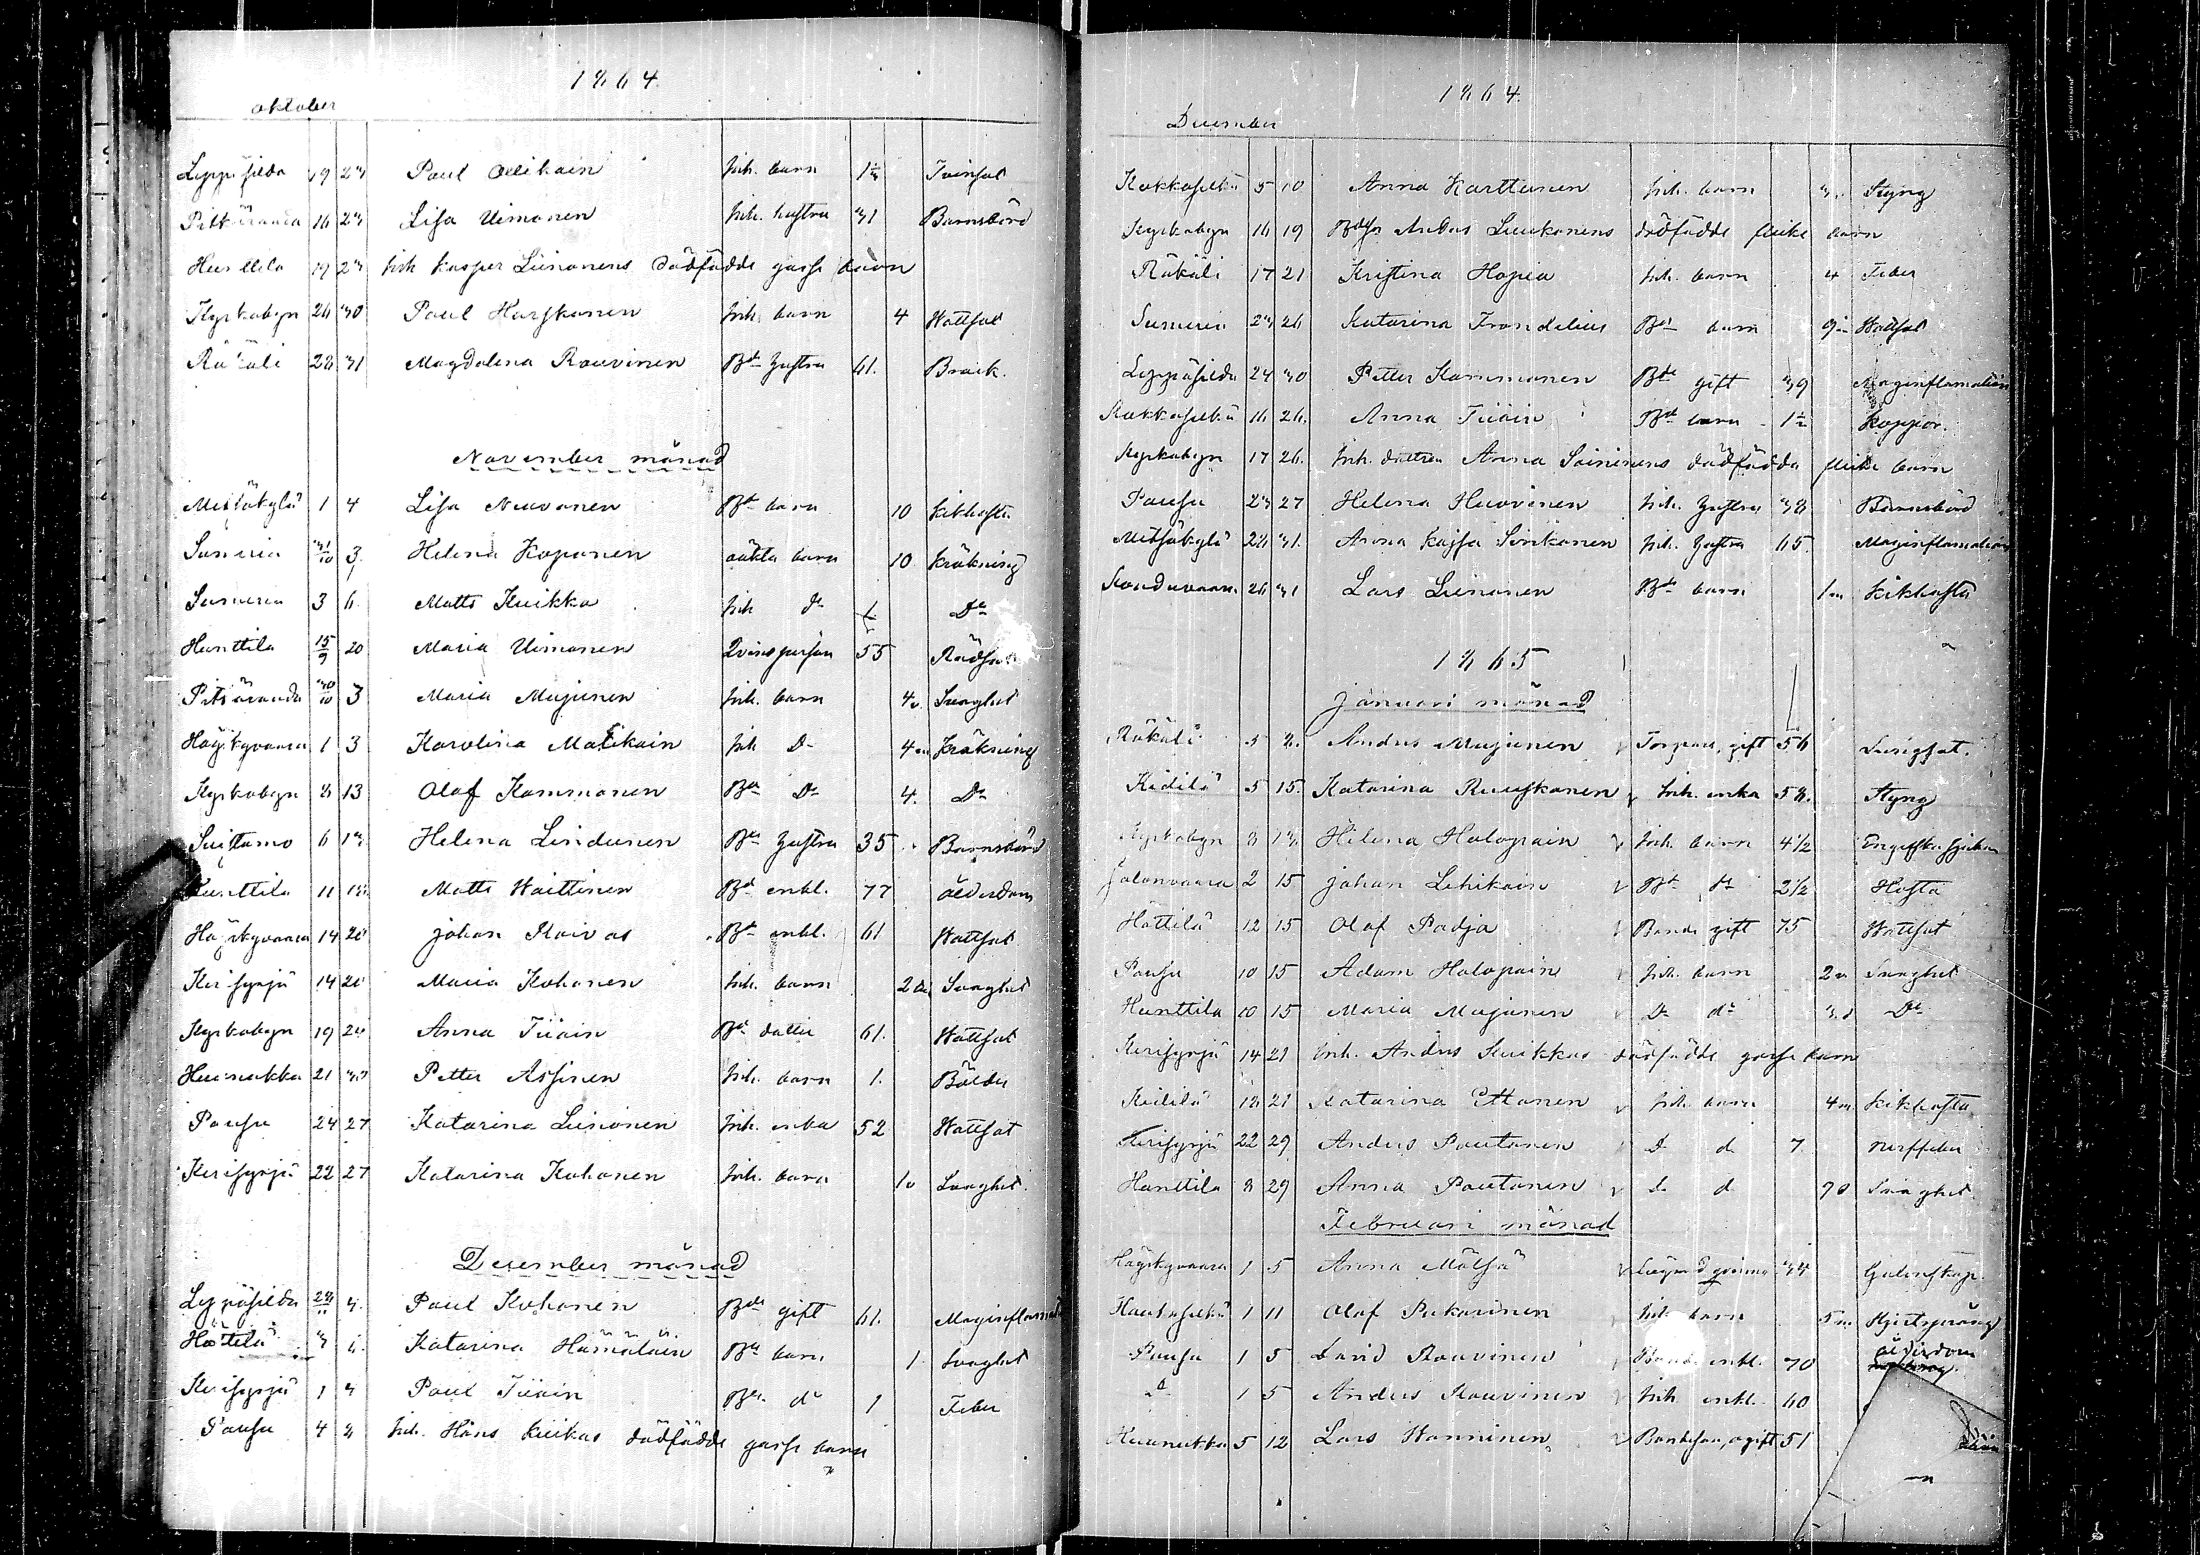 1864.
oktober
Leppäsilda 19 23 Paul Ollikain Inh. barn 1½ Tvinsot
Pitkäranda 16 23 Lisa Uimonen Inh. hustru 31 Barnsbörd
Hunttila 19 23 Inh Kasper Liinonens dödfödde gosse barn
Kyrkobyn 26 30 Paul Harskanen Inh. barn 4 Wattsot
Räkäli 28 31 Magdalena Rouvinen Bde hustru 61. Bråck.
November månad
Mitsäkylä 1 4 Lisa Nuvonen Bde barn 10 kikhosta
Sumeria 31/10 3. Helena Koponen oäkta barn 10 kräkning
Sumeria 3 6. Matts Kuikka Inh do Do
Hunttila 15/9 20 Maria Uimonen Qvinsperson 55
Pitkäranda 30/10 3 Maria Mujunen Inh. barn 4v. Svaghet
Hägikyvaara 1 3 Karolina Matikain Inh Do 4m kräkning
Kyrkobyn 8 13 Olof Kammonen Bde Do 4. Do
Suistamo 6 13 Helena Lindunen Bde hustru 35 Barnsbörd
Hunttila 11 Matts Waittinen Bde enkl. 77 ålderdom
Hägikyvaara 14 20 Johan Raivas Bde enkl. 61 Wattsot
Kerisyrjä 14 20 Maria Kohonen Inh. barn 2 Svaghet
Kyrkobyn 19 20 Anna Tiiain Bde dotter 61. Wattsot
Huunukka 21 Petter Assinen Inh. barn 1. Bölder
Pausu 24 27 Katarina Liinonen Inh. enka 52 Wattsot
Kerisyrjä 22 27 Katarina Kohonen Inh. barn 1v Svaghet.
December månad
Leppäsilda 28/11 4. Paul Kohonen Bde gift 61. Maginflamat
Hättilä 3 6. Katarina Hämäläin Bde barn 1 Svaghet
Kerisyrjä 1 Paul Tiiain Bde do 1 Feber
Pausu 4 8 Inh. Hans Kuikas dödfödde gosse barn
1864.
December
Kokkaselkä 5 10 Anna Karttunen Inh. barn Styng
Kyrkobyn 16 19 Bdsn Anders Luukonens dödfödde flicke barn
Räkäli 17 21 Kristina Hopia Inh. barn 4 Feber
Sumeria 23 26 Katarina Frondelius Bde barn 9m Wattsot
Leppäsilda 24 30 Petter Kammonen Bde gift 39 Maginflamation
Kokkaselkä 16 26. Anna Tiiain Bde barn 1½ koppor.
Kyrkobyn 17 26. Inh. dottren Anna Soininens dödfödda flicke barn
Pausu 23 27 Helena Huovinen Inh. hustru 38 Barnsbörd
Mitsäkylä 28 31. Anna Kajsa Sirikonen Inh. hustru 65. Maginflamation
26 31 Lars Liinonen Bde barn 1m kikhosta
1865
Januari månad
Räkäli 5 8. Anders Mujunen Torpare, gift 56 Lungsot.
Kidilä 5 15. Katarina Ruuskanen Inh. enka 58. Styng
Kyrkobyn 8 Helena Holopain Inh. barn 4½ Engelska sjukan
Jalonvaara 2 15 Johan Lehikoin Bde do 2½ Hosta
Hättilä 12 15 Olof Padja Bonde gift 75 Wattsot
Pausu 10 15 Adam Holopain Inh. barn 2v Svaghet
Hunttila 10 15 Maria Mujunen Do do Do
Kerisyrjä 14 21 Inh. Anders Kuikkas dödfödde gosse barn
Kidilä 18 21 Katarina Ettonen Inh. barn 4m kikhosta
Kerisyrjä 22 29 Anders Poutanen D d 7. nerffeber
Hunttila 8 29 Anna Poutanen D d Svaghet
Februari månad
Hägikyvaara 1 5 Anna Mätsä 34 Galenskap.
Hautaselkä 1 11 Olof Pukarinen Inh barn 5m Hjertsprång
Pausu 1 5 David Rouvinen Bonde enkl. 70 ålderdom
do 1 5 Anders Rouvinen Inh enkl. 60
Huunukka 5 12 Lars Wanninen Bondeson, ogift 51